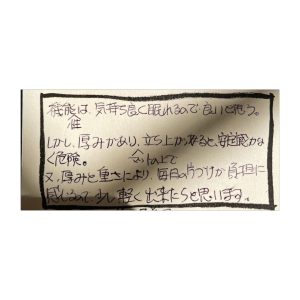 機能は、気持ち良く眠れるので良いと思う。
しかし、厚みがあり、立ち上がると、安定感がな
く危険。
又、厚みと重さにより、毎日の片づけが負担に
感じるので、少し軽く出来たらと思います。